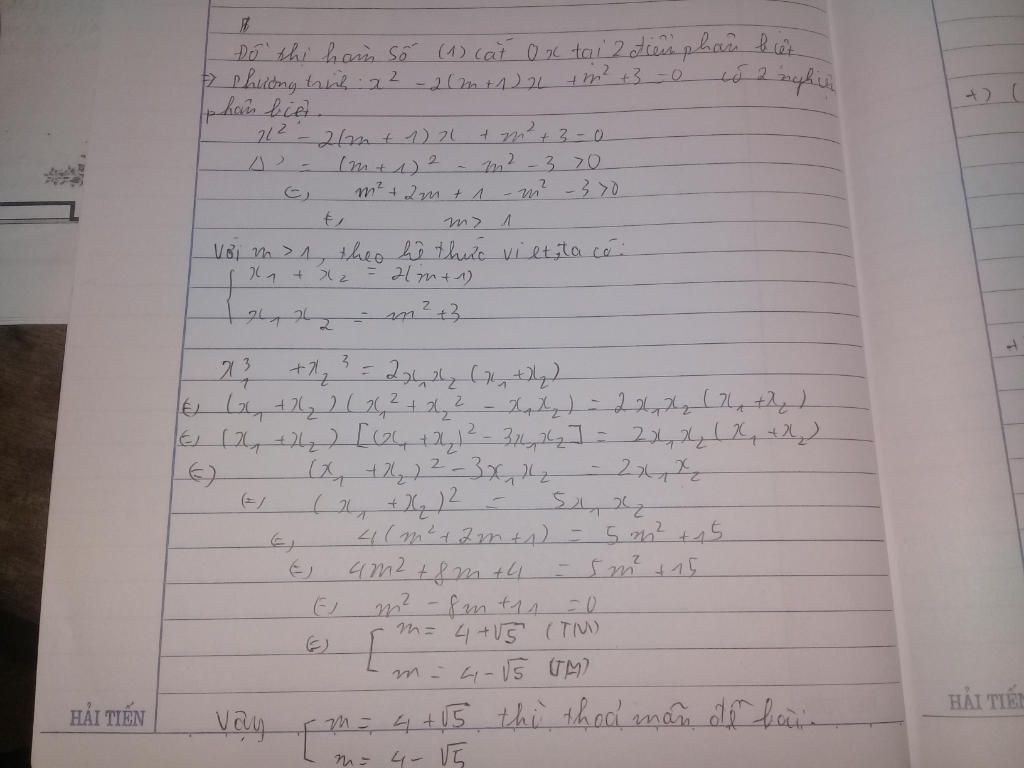 Đồ thị hàm số (1) cắt Ox tại 2 điểm phân biệt
=> phương trình: x² - 2(m+1)x + m² + 3 = 0 có 2 nghiệ
phân biệt.
x² - 2(m + 1)x + m² + 3 = 0
Δ' = (m+1)² - m² - 3 > 0
(=) m² + 2m + 1 - m² - 3 > 0
(=) m > 1
Với m > 1, theo hệ thức viet, ta có:
x₁ + x₂ = 2(m+1)
x₁ x₂ = m² + 3
x₁³ + x₂³ = 2x₁x₂ (x₁ + x₂)
(=) (x₁ + x₂)(x₁² + x₂² - x₁x₂) = 2x₁x₂(x₁ + x₂)
(=) (x₁ + x₂)[(x₁ + x₂)² - 3x₁x₂] = 2x₁x₂(x₁ + x₂)
(=) (x₁ + x₂)² - 3x₁x₂ = 2x₁x₂
(=) (x₁ + x₂)² = 5x₁x₂
(=) 4(m² + 2m + 1) = 5m² + 15
(=) 4m² + 8m + 4 = 5m² + 15
(=) m² - 8m + 11 = 0
(=) [ m = 4 + √5 (TM)
m = 4 - √5 (TM)
Vậy [ m = 4 + √5 thì thoả mãn đề bài.
m = 4 - √5
HẢI TIẾN
HẢI TIẾN